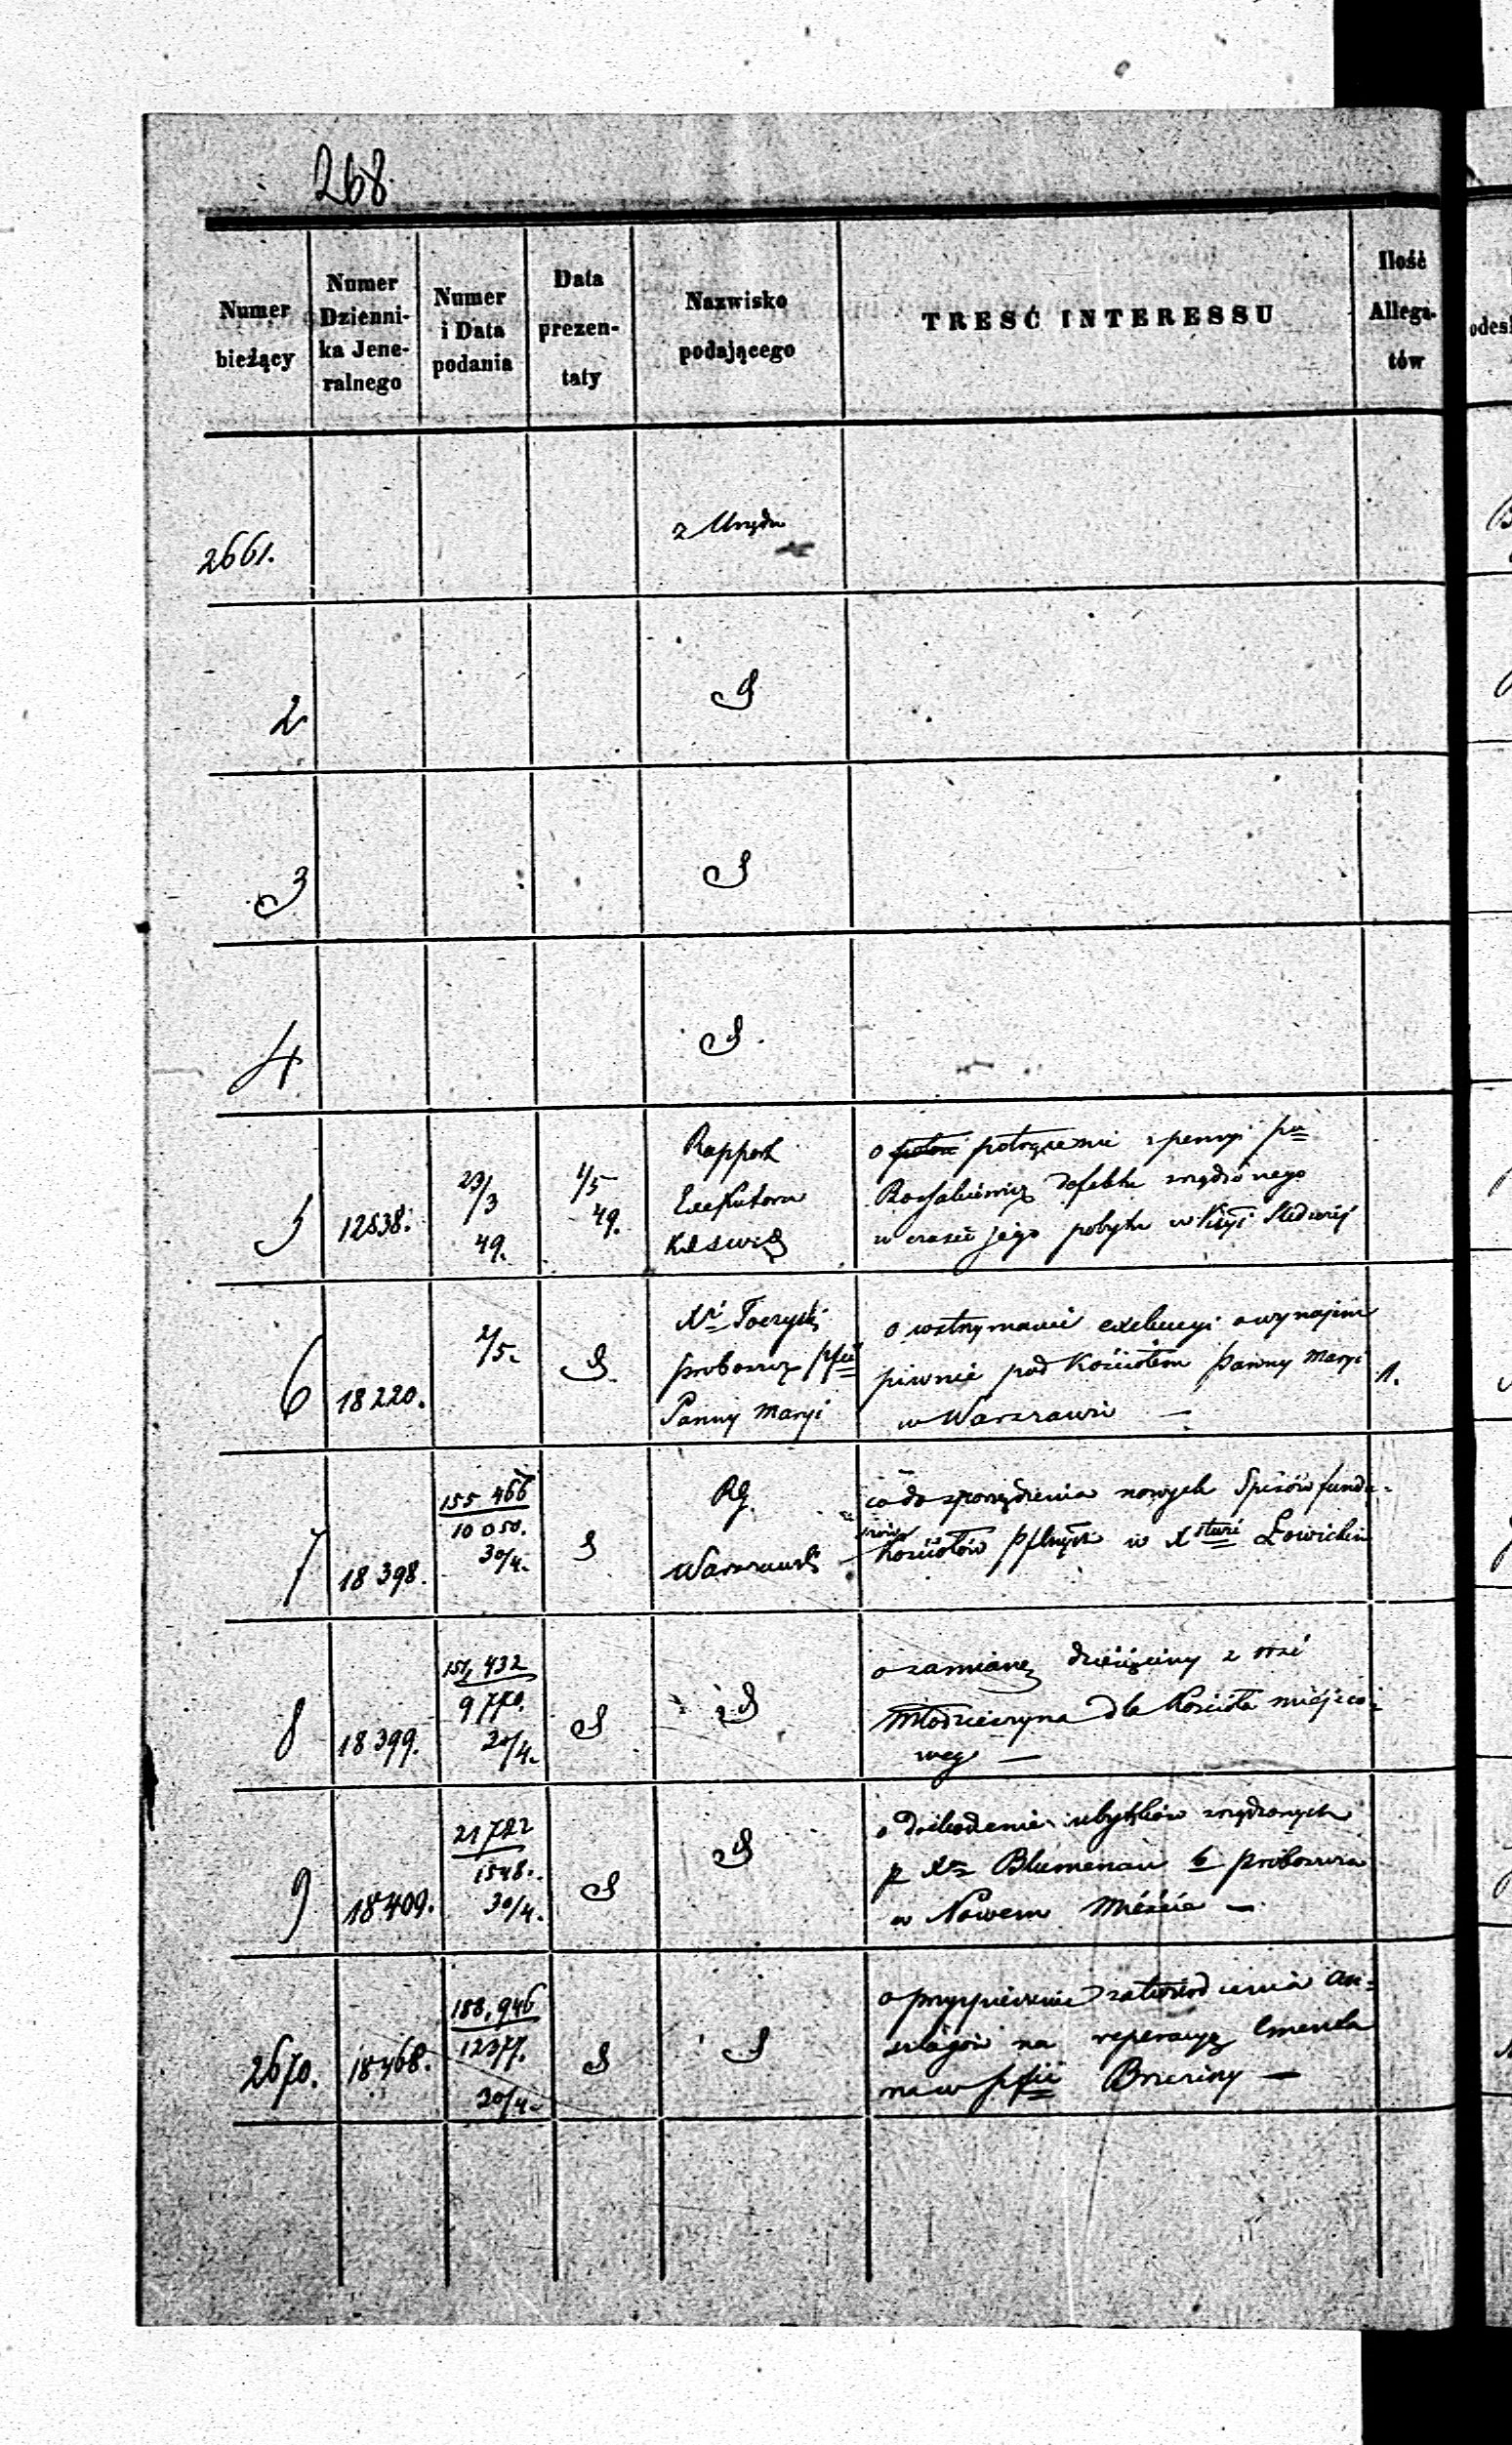 268.
Numer bieżący
Numer Dzienni-ka Jene-ralnego
Numer i Data podania
Data prezen-taty
Nazwisko podającego
TREŚĆ INTERESSU
Ilość Allega-tów
2661.
z Urzędu
2
3
4
5
12838.
23/3
49.
1/5
49.
Rapport
Exekutora
o potrącenie z pensyi
w czasie jego pobytu w
6
18220.
2/5.
proboszcz
Panny Maryi
o wstrzymanie exekucyi
piwnic pod Kościołem Panny Maryi
w Warszawie —
1.
7
18398.
155 466
10050.
30/4.
RG.
Warszawski
co do sporządzenia nowych Spisów fundu-
Kościołów w Xstwie Łowickim
8
18399.
151,432
9770.
20/4.
o zamianę dziesięciny z wsi
Młodzieszyna dla Kościoła miejsco-
wego —
9
18409.
21722
1548.
30/4.
o dochodzenie ubytków zrządzonych
p Xa Blumenau b proboszcza
w Nowem Mieście —
2670.
18468.
188,946
12377.
30/4.
o przyspieszenie zatwierdzenia an-
szlagów na reperacyę Cmenta
na w pfii Brzeziny —